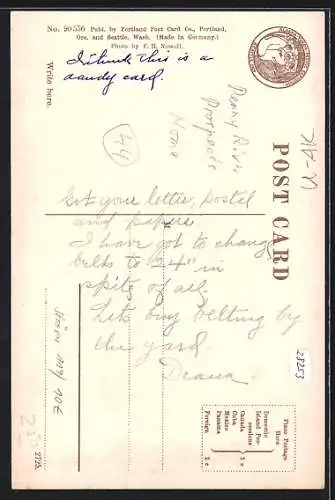 No. 90556 Publ. by Portland Post Card Co., Portland,
Ore. and Seattle, Wash. (Made in Germany.)
Photo by F. H. Nowell.
I think this is a
dandy card.
Write here.
44
Penny River
Prospects
Nome
POST CARD
Got your letter, postal
and papers.
I have got to change
belts to 24" in
spite of all.
Let buy belting by
the yard.
28253
Place Postage
Here
Domestic
Island Pos-
sessions
Canada
Cuba
Mexico
Panama
1 c
Foreign 2 c
10€
2725.